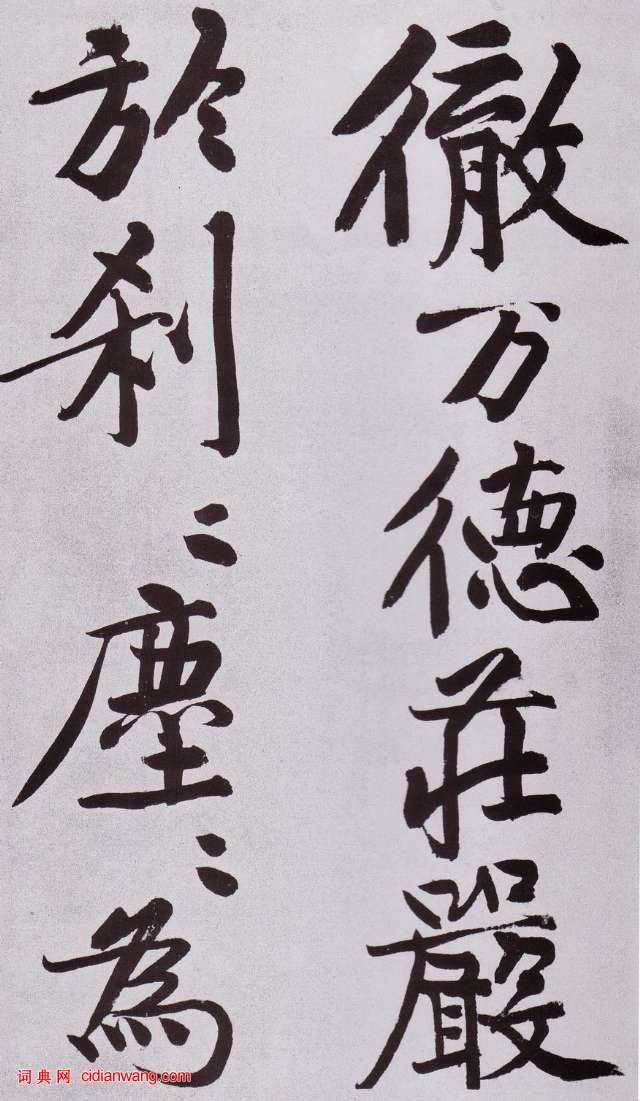 徹万德莊嚴
於刹〻塵〻為
词典网 cidianwang.com